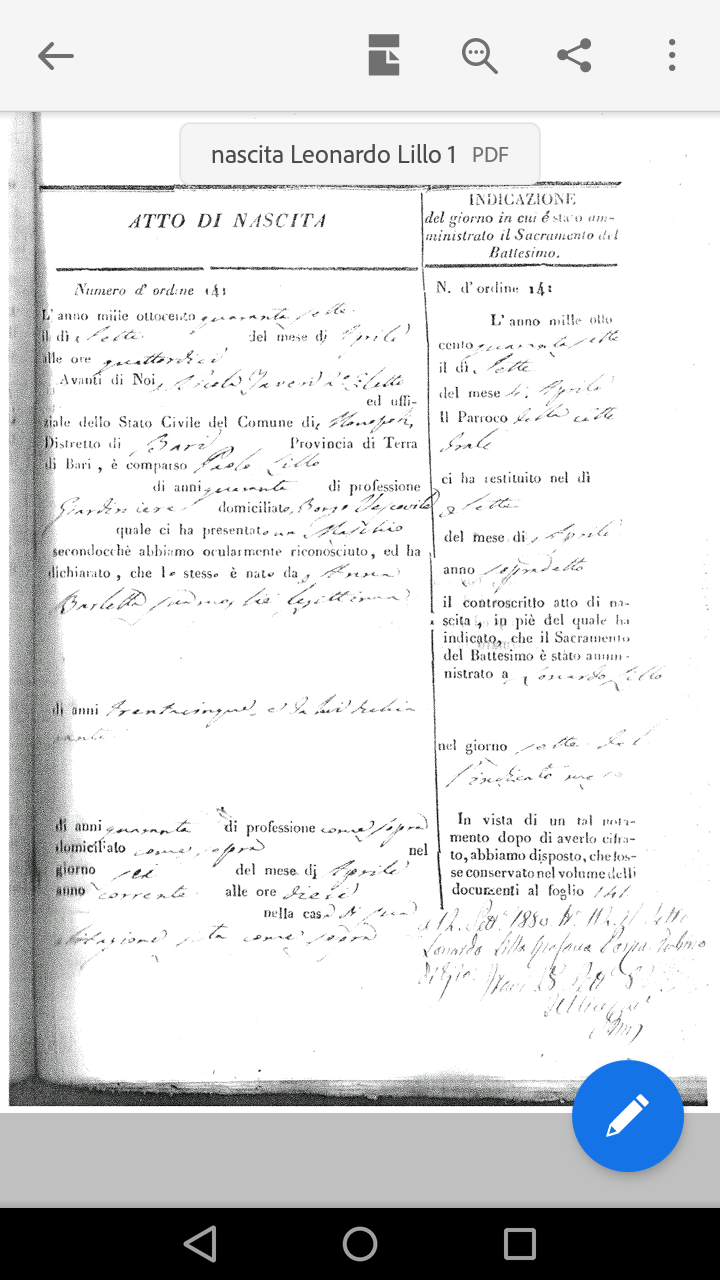 nascita Leonardo Lillo 1 PDF
ATTO DI NASCITA
Numero d'ordine 141
L'anno mille ottocento quaranta sette
il dì Sette del mese di Aprile
alle ore quattordici
Avanti di Noi Nicola
ed uffi-
ziale dello Stato Civile del Comune di Monopoli
Distretto di Bari Provincia di Terra
di Bari, è comparso Paolo Lillo
di anni quaranta di professione
Giardiniere domiciliato Borgo Vescovile
quale ci ha presentato un Maschio
secondocchè abbiamo ocularmente riconosciuto, ed ha
dichiarato, che lo stesso è nato da Anna
Barletta sua moglie legittima
di anni trentacinque, e da lui dichia
rante
di anni quaranta di professione come sopra
domiciliato come sopra nel
giorno sei del mese di Aprile
anno corrente alle ore dieci
nella casa di sua
abitazione sita come sopra
INDICAZIONE
del giorno in cui é stato am-
ministrato il Sacramento del
Battesimo.
N. d'ordine 141
L'anno mille otto
cento quaranta sette
il dì Sette
del mese di Aprile
Il Parroco della catte
drale
ci ha restituito nel dì
Sette
del mese di Aprile
anno sopradetto
il controscritto atto di na-
scita, in piè del quale ha
indicato, che il Sacramento
del Battesimo è stato ammi-
nistrato a Leonardo Lillo
nel giorno sette del
l'indicato mese
In vista di un tal nota-
mento dopo di averlo cifra-
to, abbiamo disposto, che fos-
se conservato nel volume delli
documenti al foglio 141
1880
Leonardo Lillo